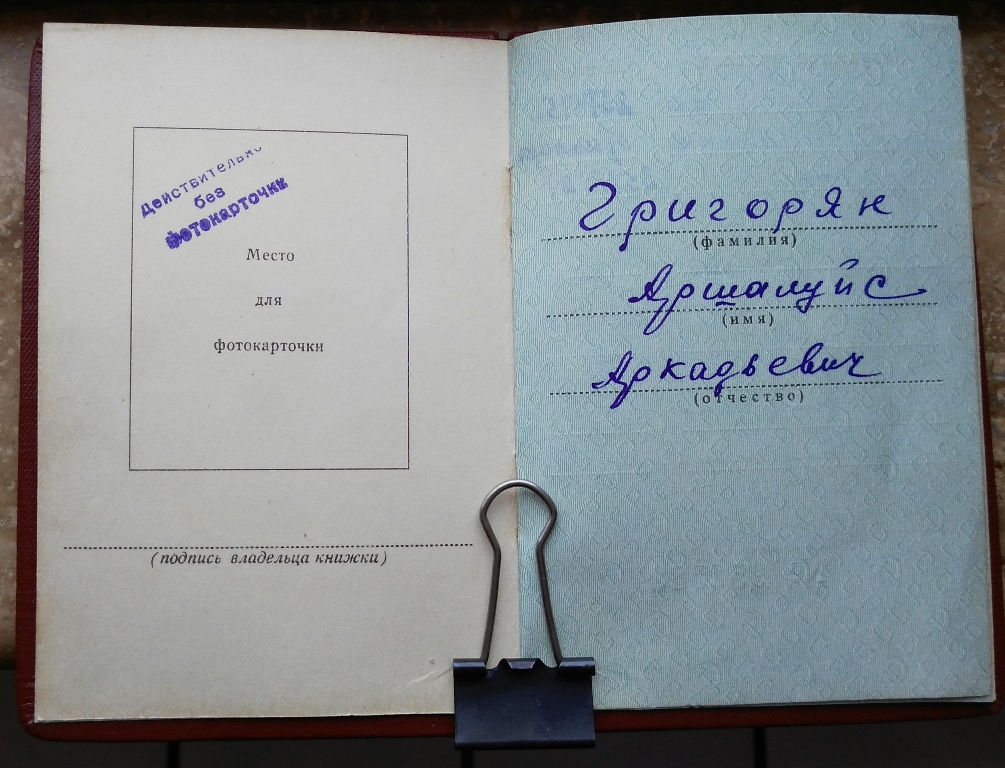 Действительно
без
фотокарточки
Место
для
фотокарточки
(подпись владельца книжки)
Григорян
(фамилия)
Аршалуйс
(имя)
Аркадьевич
(отчество)